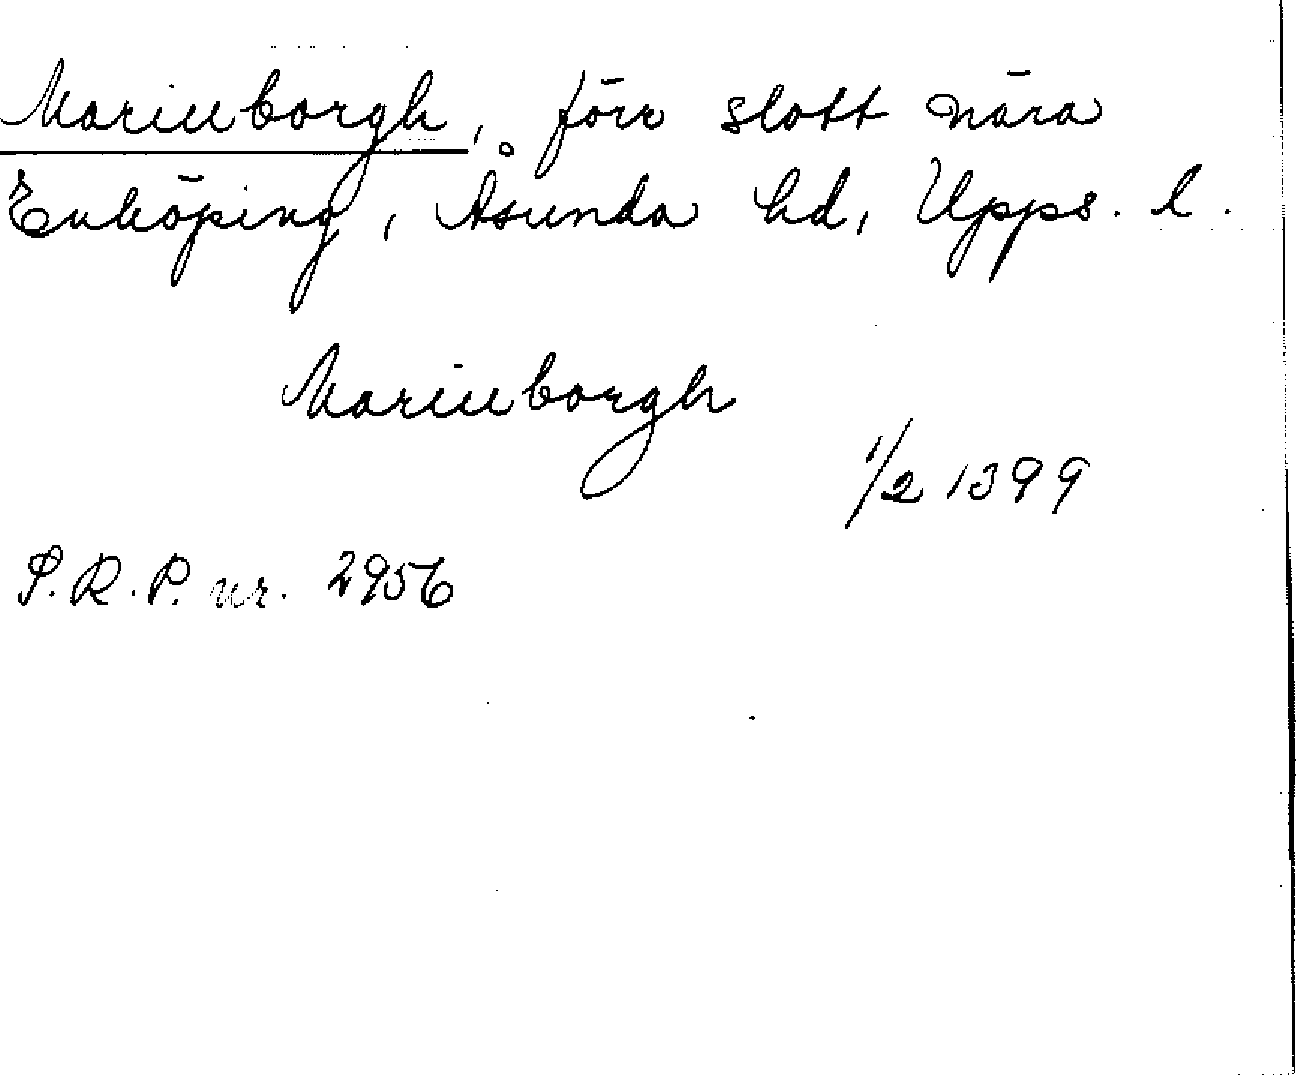 Marinborgh, förr slott nära
Enköping, Åsunda hd, Upps. l.
Marinborgh
1/2 1399
S.R.P. nr. 2956